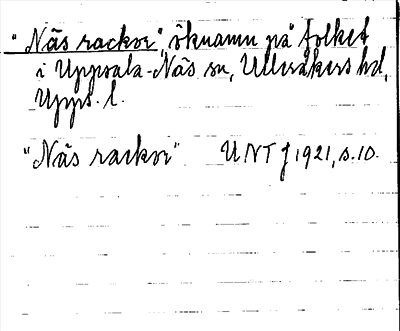 "Näs rackor", öknamn på folket
i Uppsala-Näs sn, Ulleråkers hd,
Upps. l.
"Näs rackor" UNT J 1921, s. 10.